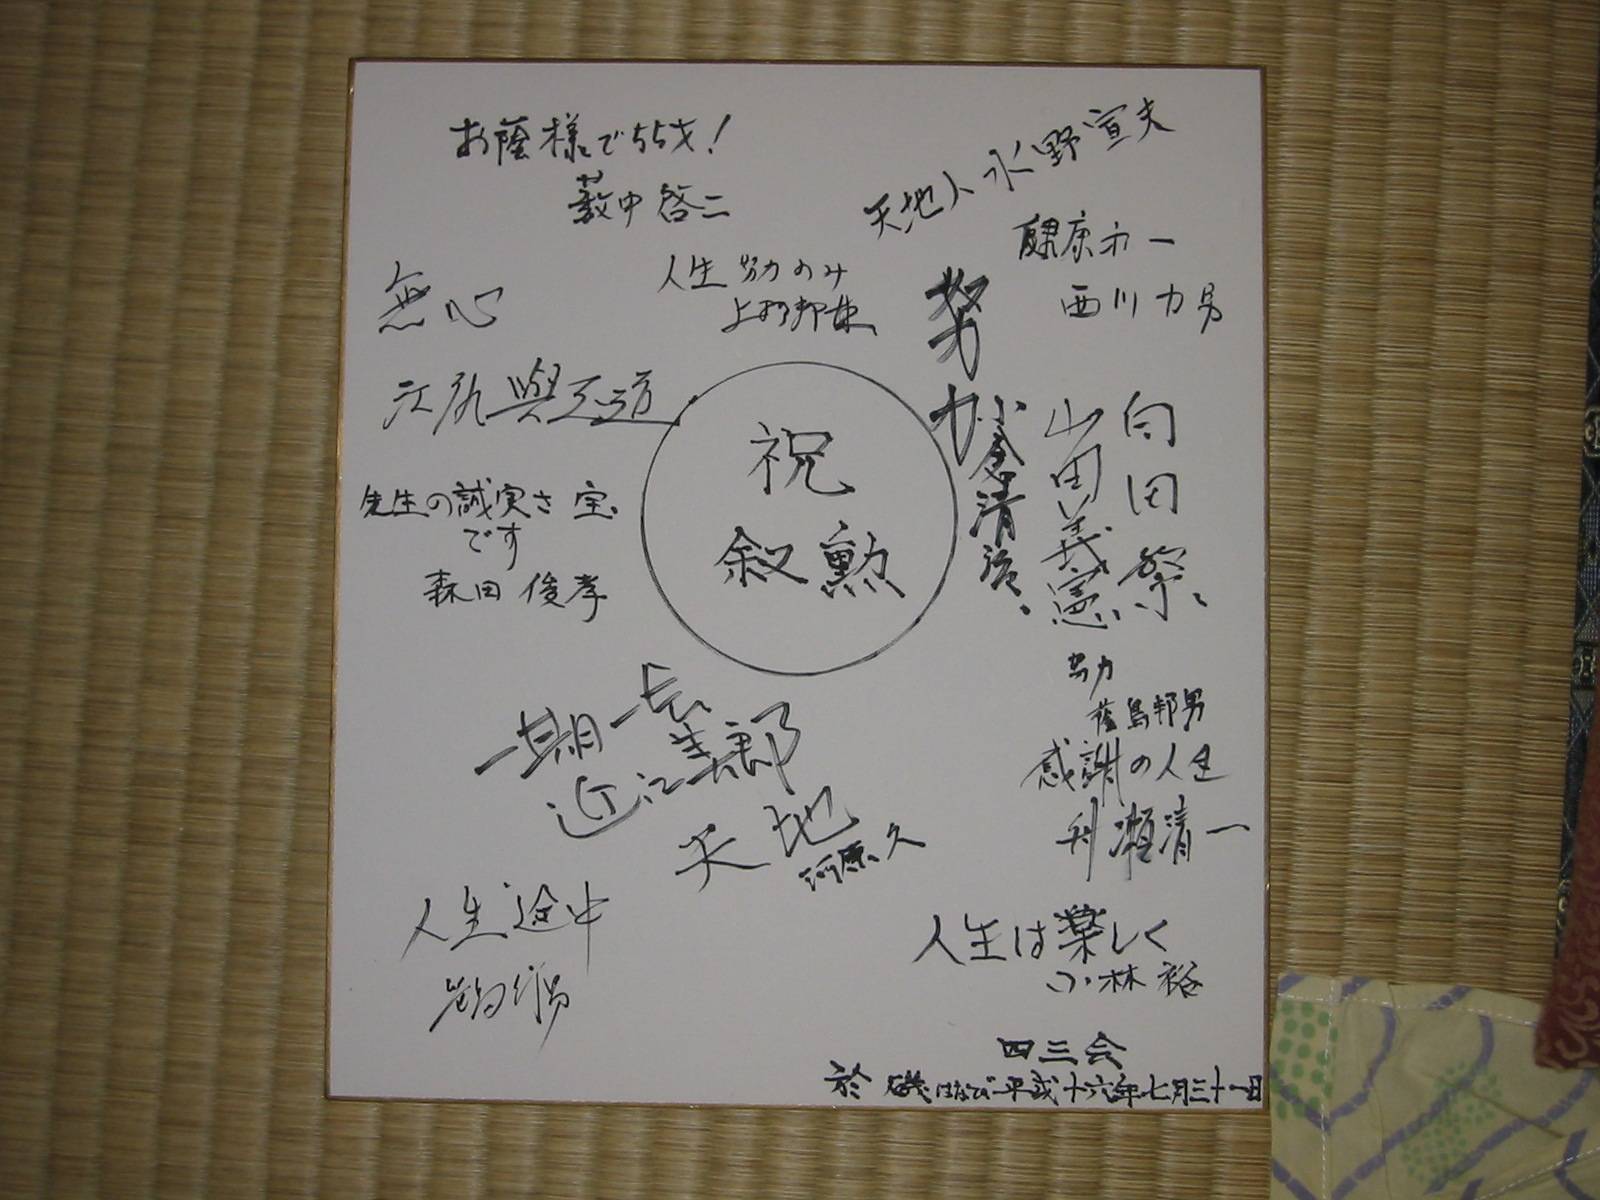 お蔭様で55才!
薮中啓二
天地人 水野宣夫
健康第一
西川力男
人生努力のみ
無心
努力
小倉清治
山田義憲
向田
祝
叙勲
先生の誠実さ宝
です
森田俊孝
努力
蔭島邦男
感謝の人生
利瀬清一
一期一会
近江美郎
天地
河原久
人生途中
人生は楽しく
小林裕
四三会
於 磯はなび 平成十六年七月三十一日